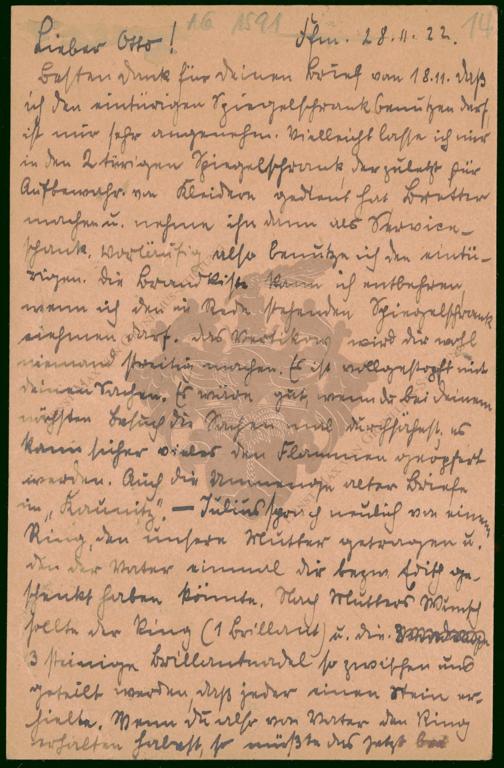 16 1591
14
Lieber Otto! Ffm. 28.11.22.
Besten Dank für deinen Brief vom 18.11. daß
ich den eintürigen Spiegelschrank benutzen darf
ist mir sehr angenehm. Vielleicht lasse ich mir
in den 2 türigen Spiegelschrank, der zuletzt für
Aufbewahr. von Kleidern gedient hat Bretter
machen u. nehme ihn dann als Service-
schrank. Vorläufig also benutze ich den eintü-
rigen. Die Brandkiste kann ich entbehren,
wenn ich den in Rede stehenden Spiegelschrank
nehmen darf. Das Vertikow wird dir wohl
niemand streitig machen. Es ist vollgestopft mit
deinen Sachen. Es wäre gut, wenn du bei deinem
nächsten Besuch die Sachen mal durchsähest, es
kann sicher vieles den Flammen geopfert
werden. Auch die Unmenge alter Briefe
im „Kaunitz“. — Julius sprach neulich von einem
Ring, den unsere Mutter getragen u.
den der Vater einmal dir bezw. Edith ge-
schenkt haben könnte. Nach Mutters Wunsch
sollte der Ring (1 Brillant) u. die
3 steinige Brillantnadel so zwischen uns
geteilt werden, daß jeder einen Stein er-
hielte. Wenn du also von Vater den Ring
erhalten habest, so müßte das jetzt